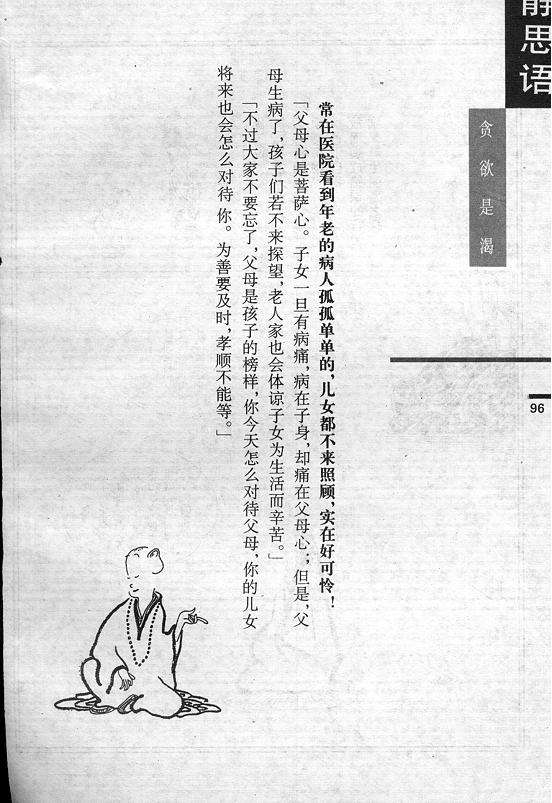 静思语
贪欲是渴
96
常在医院看到年老的病人孤孤单单的,儿女都不来照顾,实在好可怜!
「父母心是菩萨心。子女一旦有病痛,病在子身,却痛在父母心;但是,父
母生病了,孩子们若不来探望,老人家也会体谅子女为生活而辛苦。」
「不过大家不要忘了,父母是孩子的榜样,你今天怎么对待父母,你的儿女
将来也会怎么对待你。为善要及时,孝顺不能等。」